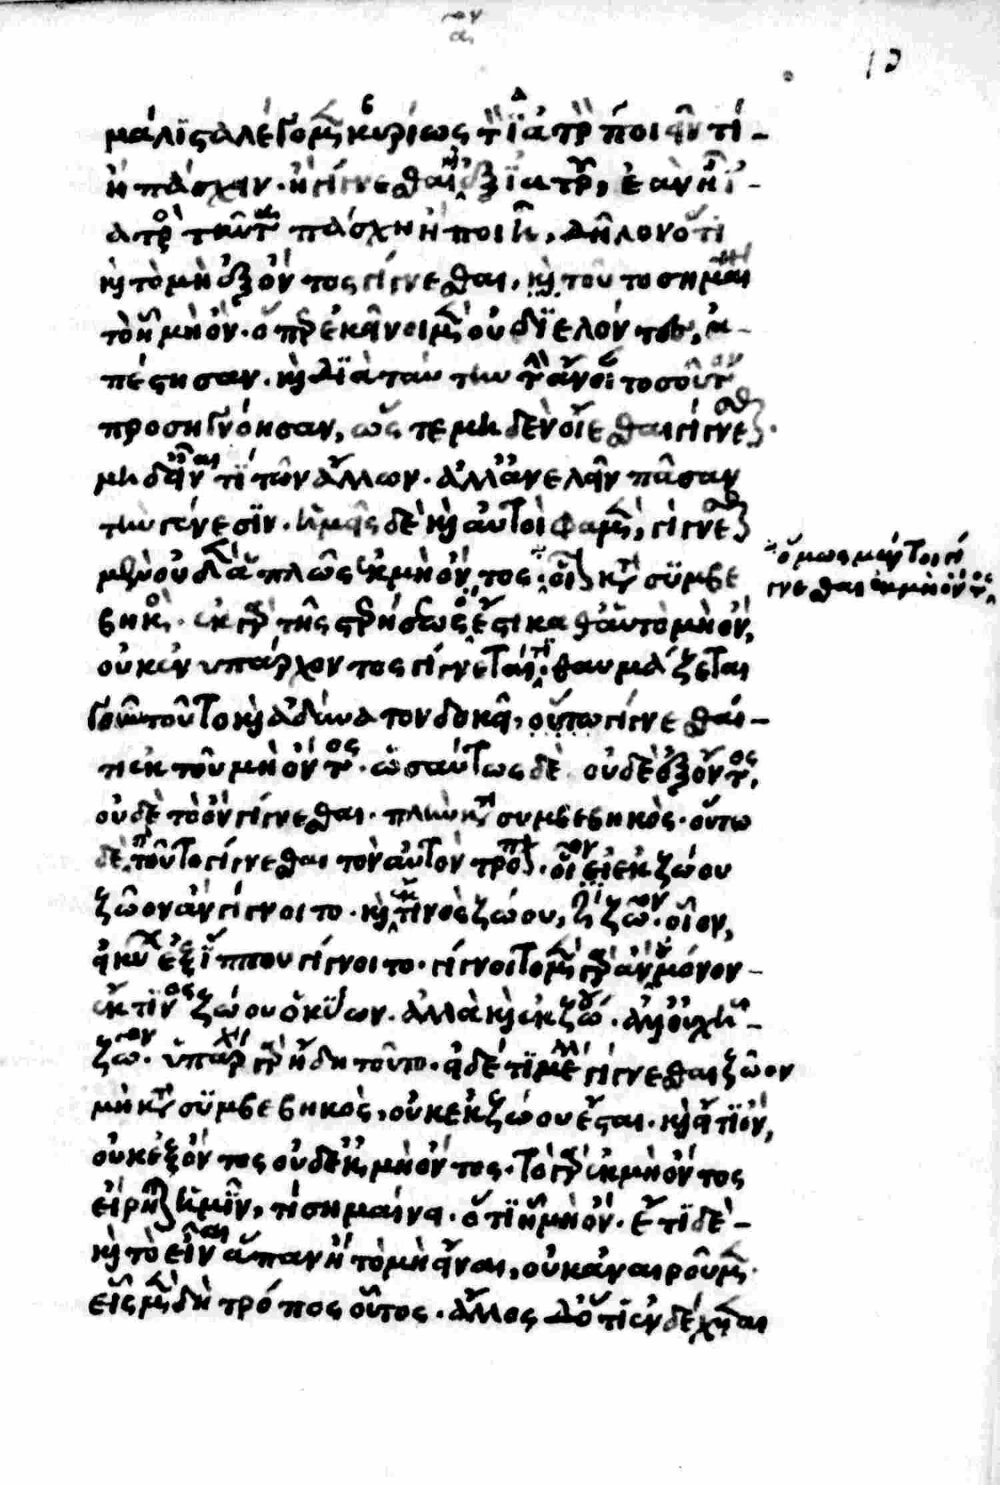 μάλιστα λέγομεν κυρίως τὸν ἰατρὸν ποιεῖν τί-
ἢ πάσχειν· ἢ γίγνεσθαί τι ἐξ ἰατροῦ, ἐὰν ἢ ἰ-
ατρὸς ταῦτα πάσχη ἢ ποιῆ, δῆλον ὅτι
καὶ τὸ μὴ ἐξ ὄντος γίγνεσθαι, καὶ τοῦτο σημαίνει
τὸ ἧ μὴ ὄν· ὅπερ ἐκεῖνοι μὲν οὐ διελόντες, ἀ-
πέστησαν· καὶ διὰ ταύτην τὴν ἄγνοιαν τοσοῦτον
προσηγνόησαν, ὥστε μηδὲν οἴεσθαι γίγνεσθαι·
μηδ' εἶναί τι τῶν ἄλλων· ἀλλ' ἀνελεῖν πᾶσαν
τὴν γένεσιν· ἡμεῖς δὲ καὶ αὐτοὶ φαμὲν, γίγνεσθαι
μὲν οὐδὲν ἁπλῶς ἐκ μὴ ὄντος· οἷον κατὰ συμβε
βηκός· ἐκ γὰρ τῆς στερήσεως ὅ ἐστι καθ' αὑτὸ μὴ ὄν,
οὐκ ἐνυπάρχοντος γίγνεταί τι· θαυμάζεται
γοῦν τοῦτο καὶ ἀδύνατον δοκεῖ, οὕτω γίγνεσθαί-
τι ἐκ τοῦ μὴ ὄντος· ὡσαύτως δὲ οὐδὲ ἐξ ὄντος,
οὐδὲ τὸ ὂν γίγνεσθαι· πλὴν κατὰ συμβεβηκός· οὕτω
δὲ τοῦτο γίγνεσθαι τὸν αὐτὸν τρόπον· οἷον εἰ ἐκ ζώου
ζῶον ἂν γίγνοιτο· καὶ ἐκ τινὸς ζώου, τὶ ζῶον· οἷον,
εἰ κύων ἐξ ἵππου γίγνοιτο· γίγνοιτο μὲν γὰρ ἂν οὐ μόνον-
ἐκ τινὸς ζώου ὁ κύων· ἀλλὰ καὶ ἐκ ζώου· ἀλλ' οὐχ ἧ-
ζῶον· ὑπάρχει γὰρ ἤδη τοῦτο· εἰ δέ τι μέλλει γίγνεσθαι ζῶον
μὴ κατὰ συμβεβηκός, οὐκ ἐκ ζώου ἔσται· καὶ εἴ τι ὄν,
οὐκ ἐξ ὄντος οὐδ' ἐκ μὴ ὄντος· τὸ γὰρ ἐκ μὴ ὄντος
εἴρηται ἡμῖν, τί σημαίνει· ὅτι ἧ μὴ ὄν· ἔτι δὲ-
καὶ τὸ εἶναι ἅπαν ἢ τὸ μὴ εἶναι, οὐκ ἀναιροῦμεν·
εἷς μὲν δὴ τρόπος οὗτος· ἄλλος δ' ὅτι ἐνδέχεται
ὅμως μέντοι γί
γνεσθαι ἐκ μὴ ὄντος